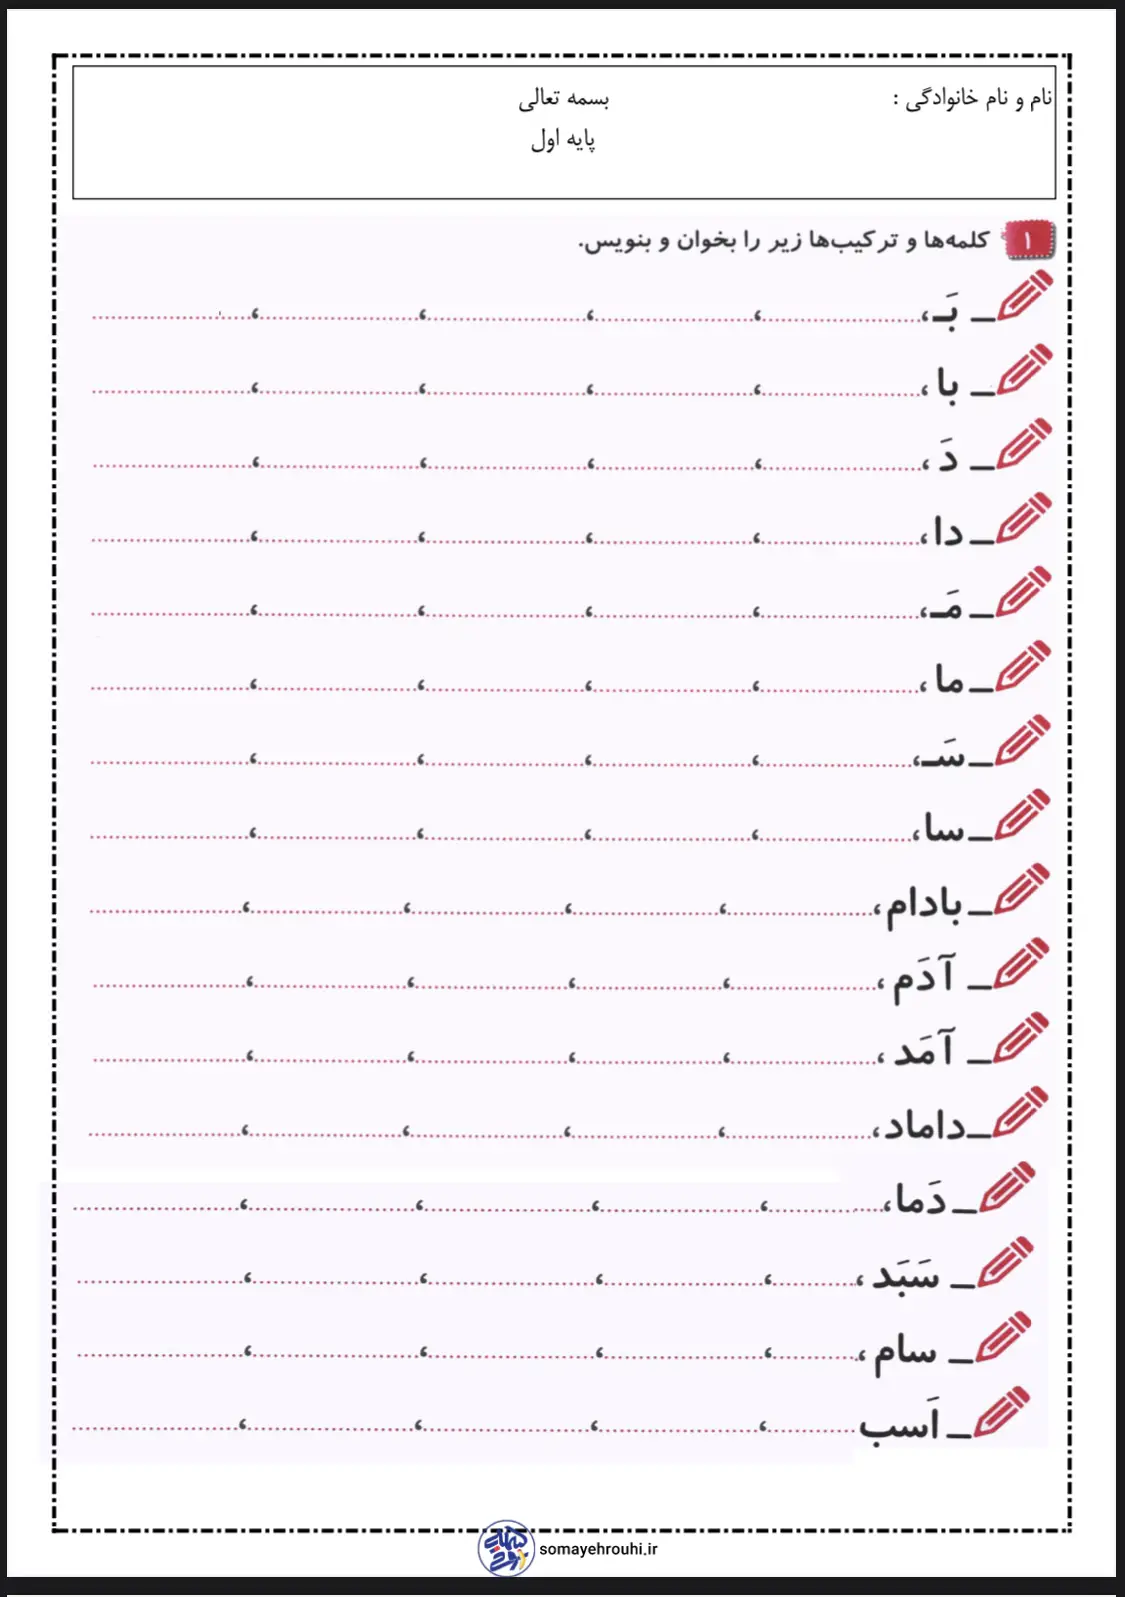 نام و نام خانوادگی :
بسمه تعالی
پایه اول
۱ کلمه‌ها و ترکیب‌ها زیر را بخوان و بنویس.
ـ بَـ ، ، ، ، ،
ـ با ، ، ، ، ،
ـ دَ ، ، ، ، ،
ـ دا ، ، ، ، ،
ـ مَـ ، ، ، ، ،
ـ ما ، ، ، ، ،
ـ سَـ ، ، ، ، ،
ـ سا ، ، ، ، ،
ـ بادام ، ، ، ، ،
ـ آدَم ، ، ، ، ،
ـ آمَد ، ، ، ، ،
ـ داماد ، ، ، ، ،
ـ دَما ، ، ، ، ،
ـ سَبَد ، ، ، ، ،
ـ سام ، ، ، ، ،
ـ اَسب ، ، ، ،
somayehrouhi.ir